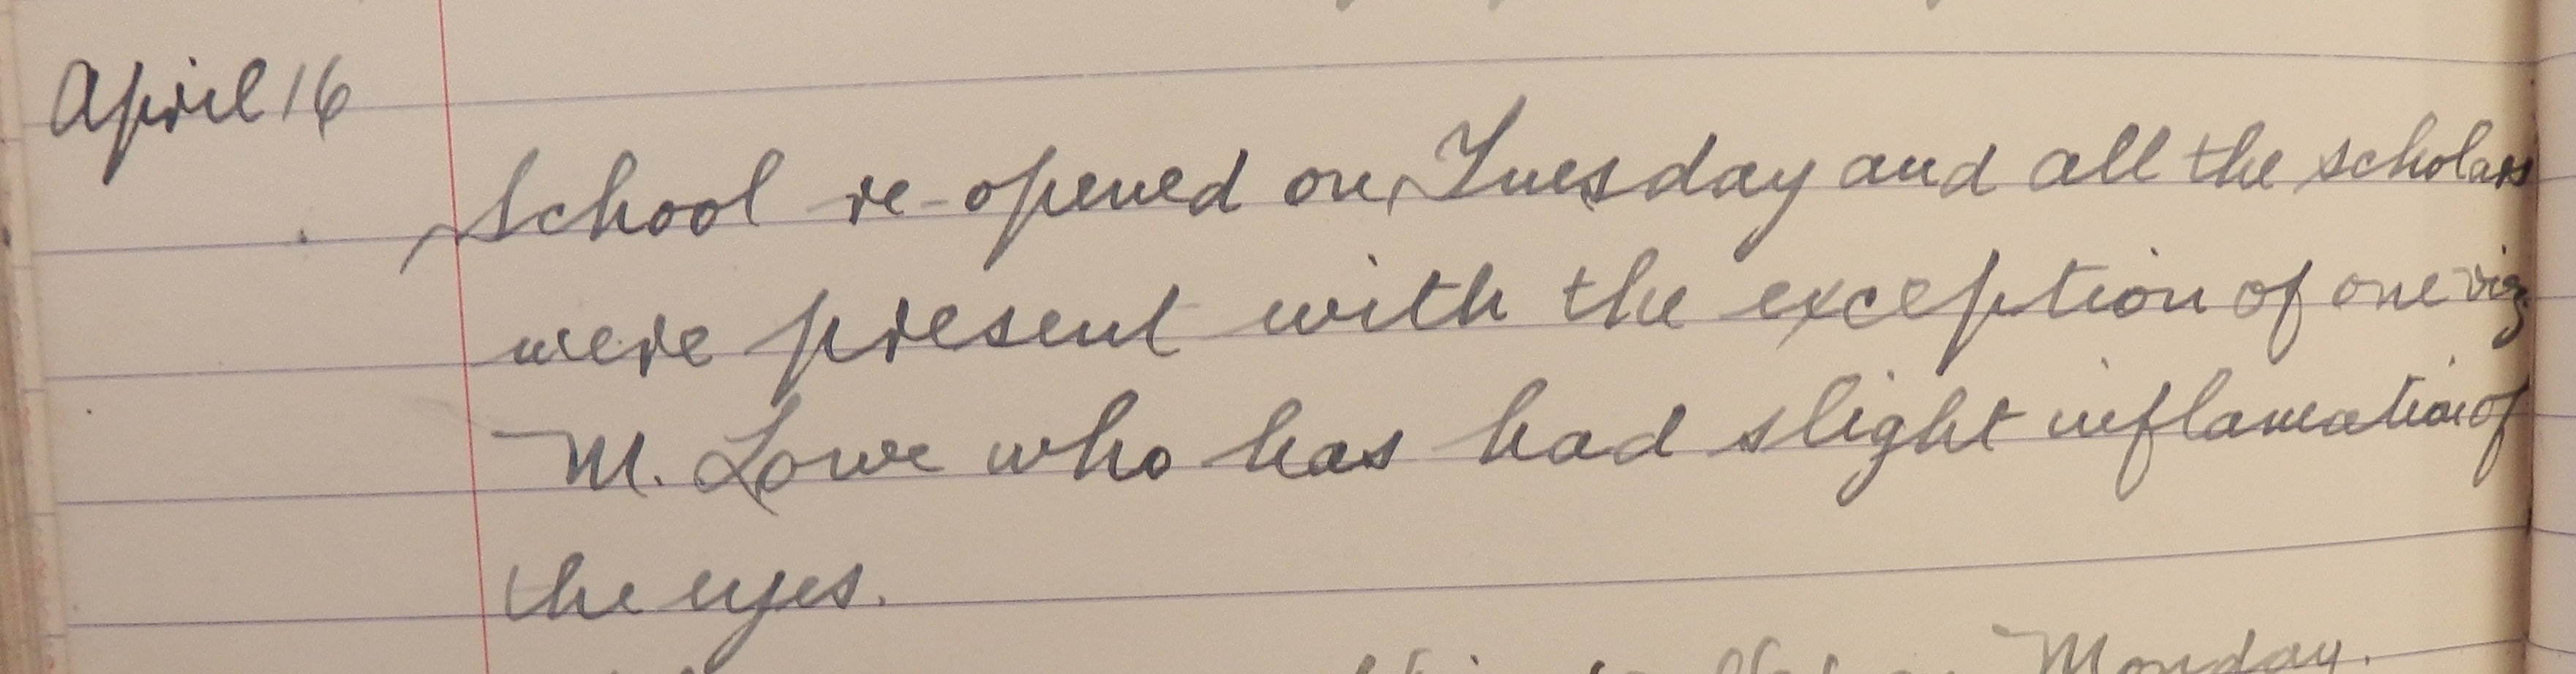 April 16
School re-opened on Tuesday and all the scholars
were present with the exception of one viz
M. Lowe who has had slight inflamation of
the eyes.
Monday.